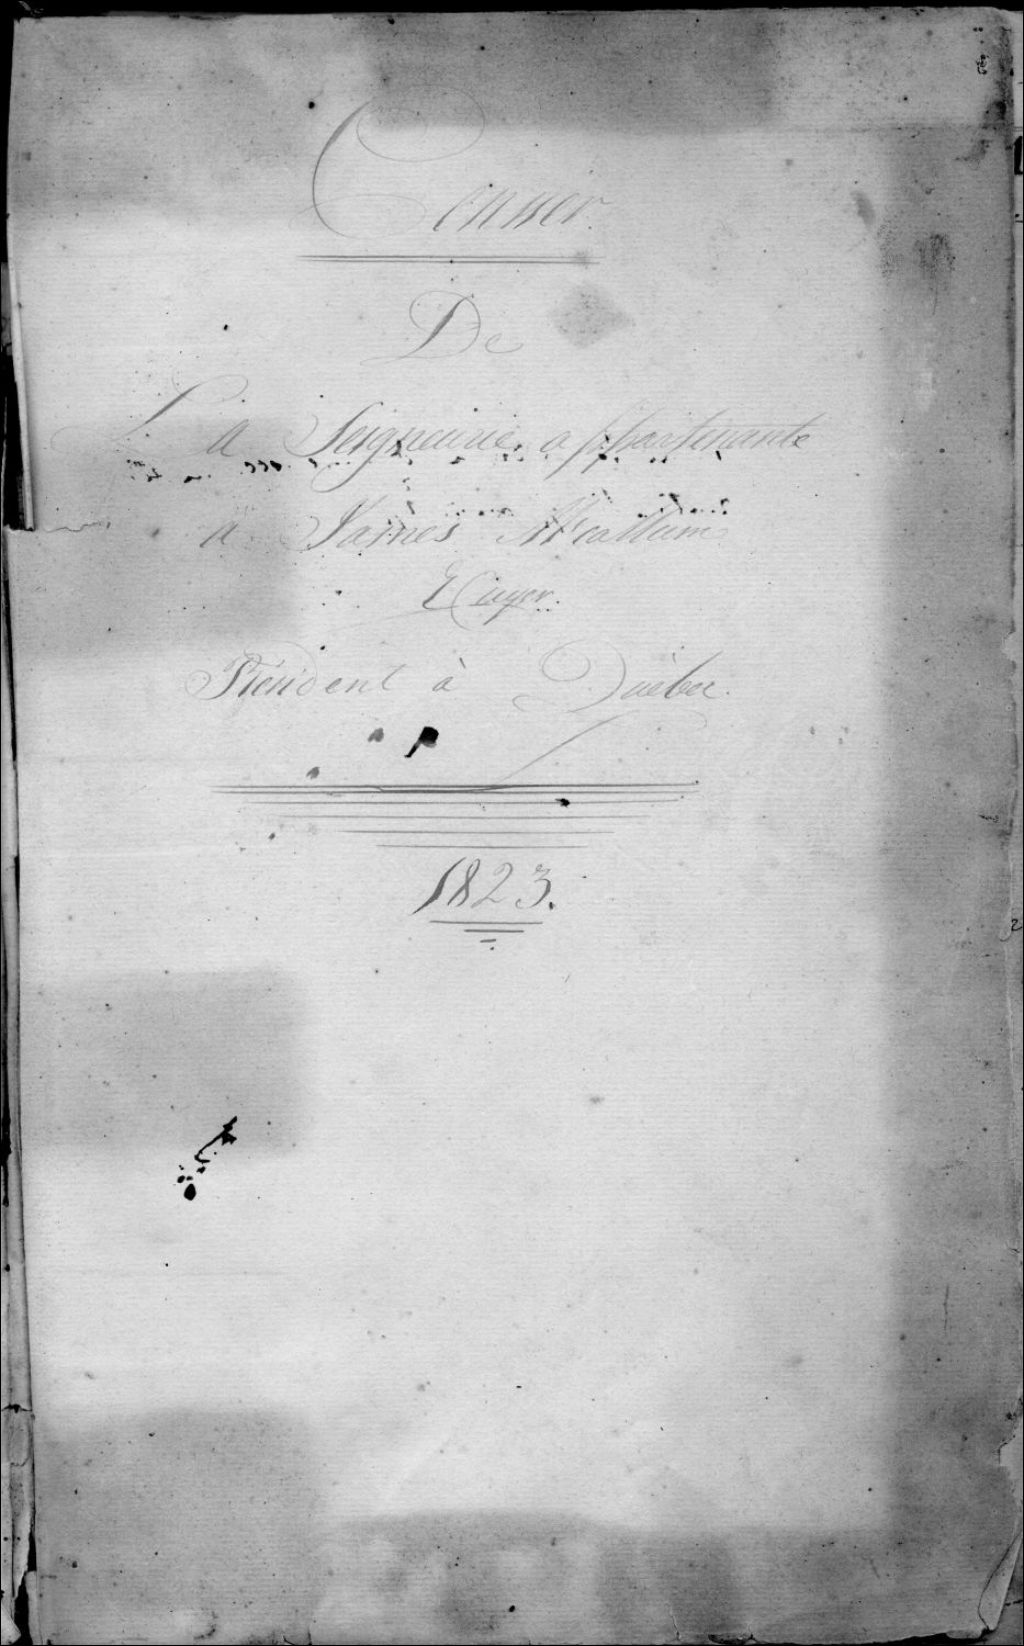 Censier.
De
La Seigneurie appartenante
a James McCallum
Ecuyer.
Résident à Québec.
1823.